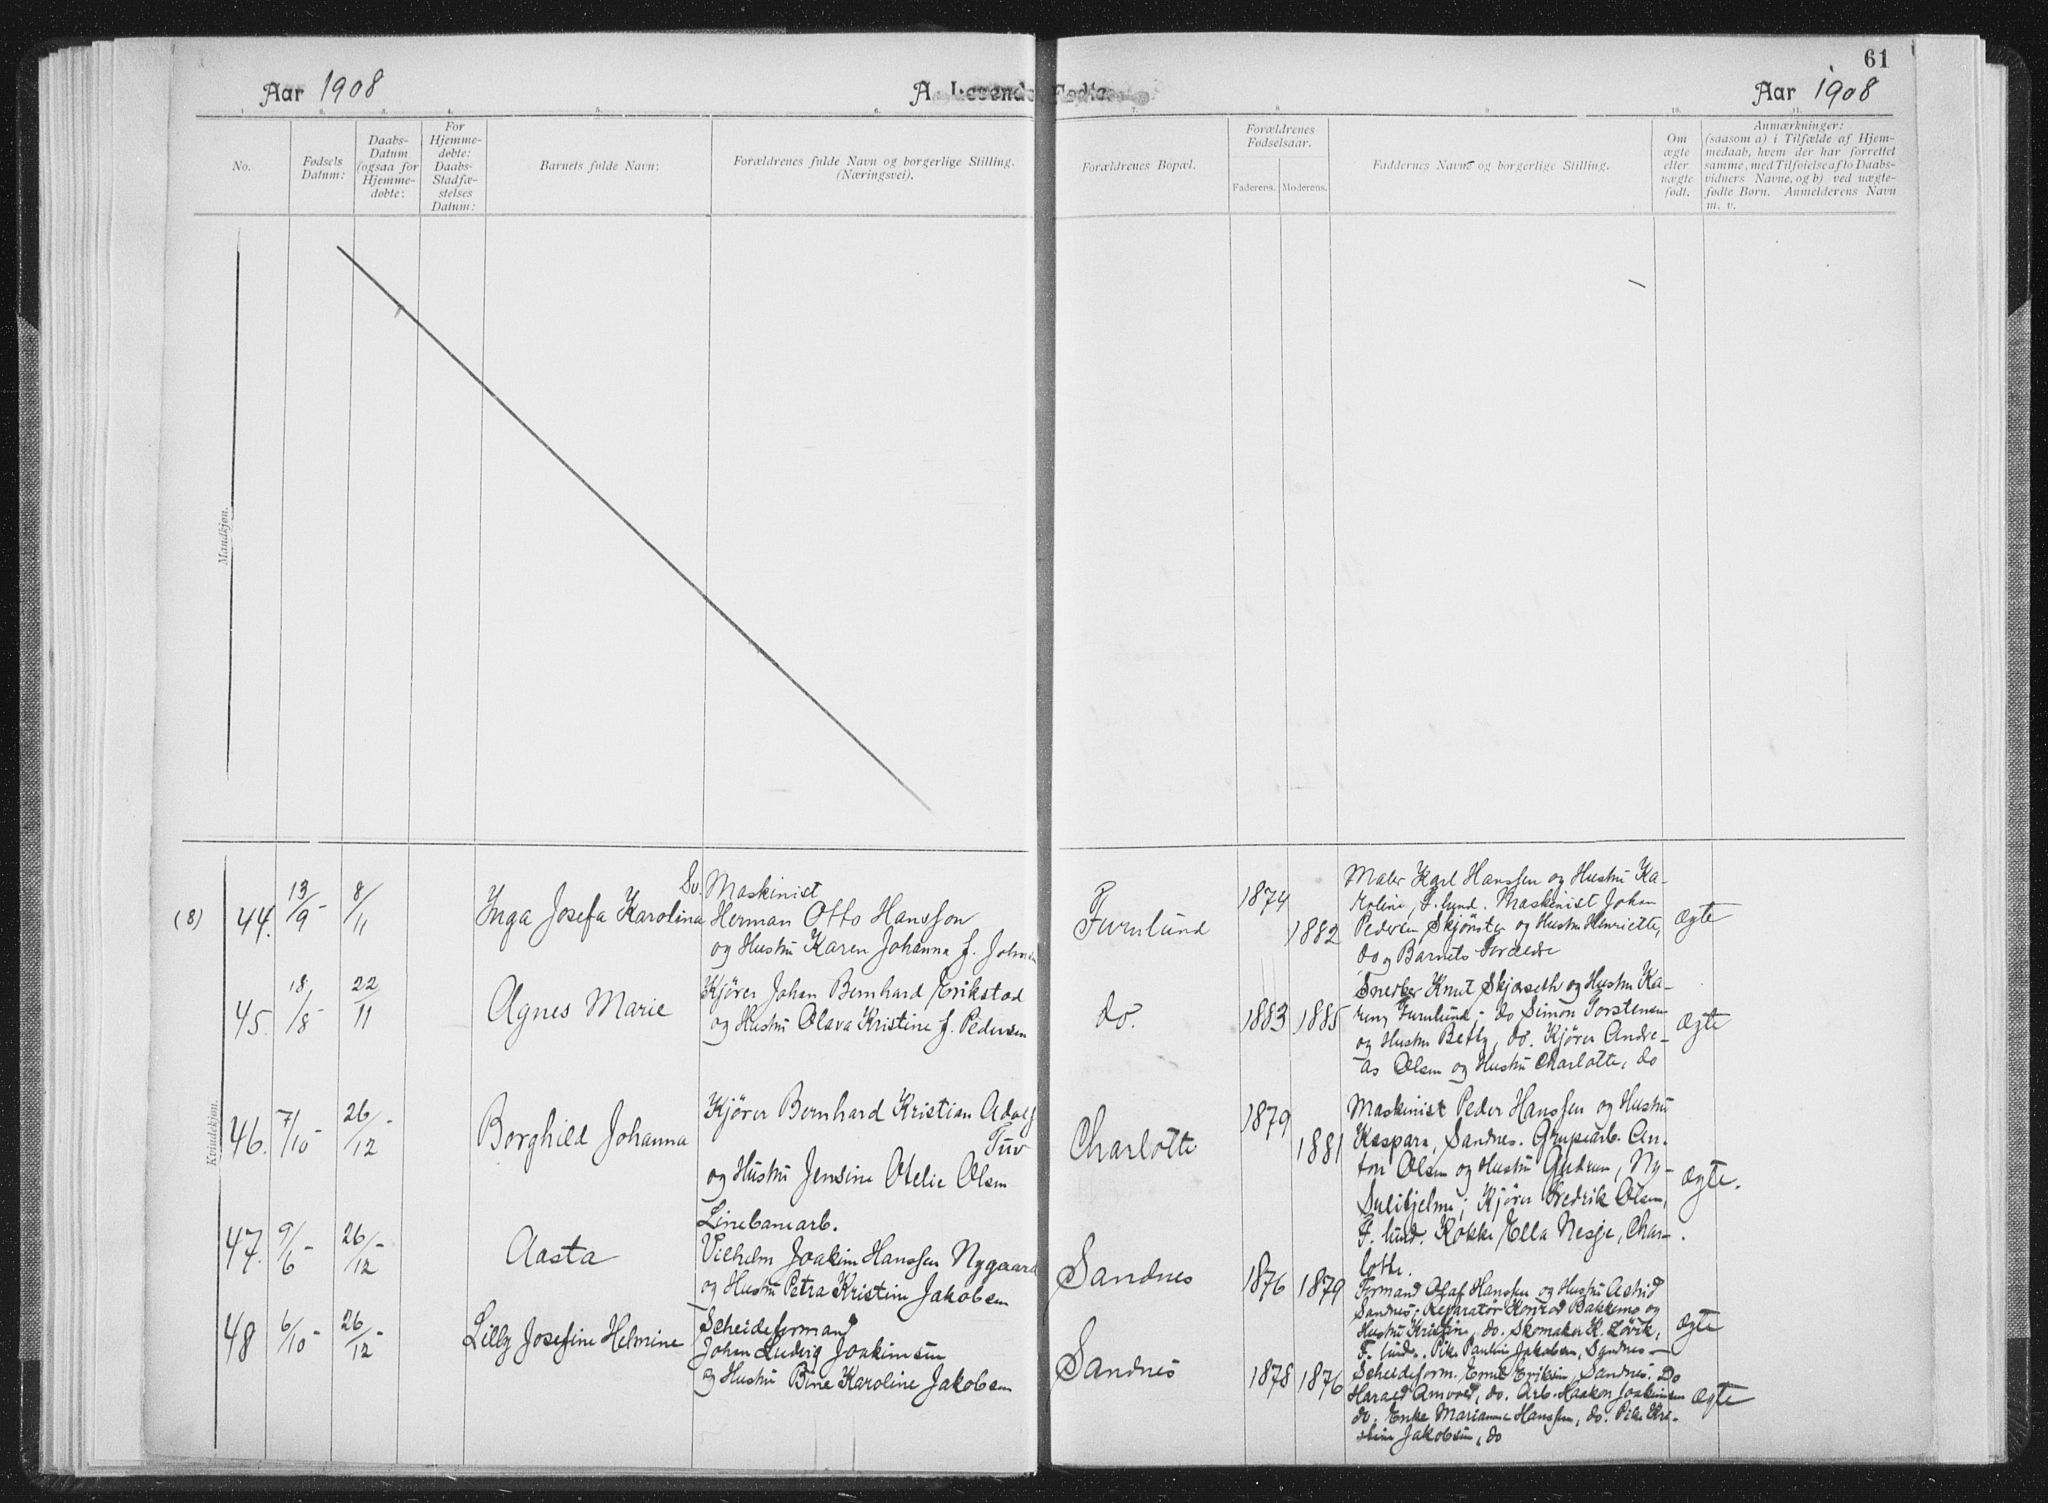 61
Aar 1908
A. Levende Fødte.
Aar 1908
1. 2. 3. 4. 5. 6. 7. 8. 9. 10. 11.
No.
Fødsels
Datum:
Daabs-
Datum
(ogsaa for
Hjemme-
døbte:
For
Hjemme-
døbte:
Daabs-
Stadfæ-
stelses
Datum:
Barnets fulde Navn:
Forældrenes fulde Navn og borgerlige Stilling.
(Næringsvei).
Forældrenes Bopæl.
Forældrenes
Fødselsaar.
Faderens. Moderens.
Faddernes Navne og borgerlige Stilling.
Om
ægte
eller
uægte
født.
Anmærkninger:
(saasom a) i Tilfælde af Hjem-
medaab, hvem der har forrettet
samme, med Tilføielse af to Daabs-
vidners Navne, og b) ved uægte-
fødte Børn. Anmelderens Navn
m. v.
Mandkjøn.
Kvindekjøn.
(8) 44. 13/9 - 8/11
Inga Josefa Karolina
Sv. Maskinist
Herman Otto Hanssen
og Hustru Karen Johanna f.
Furulund
1874
1882
Maler Karl Hanssen og Hustru Ka-
roline, F. lund. Maskinist Johan
Pedersen Skjønster og Hustru Henriette,
do og Barnets Forældre
ægte
45. 18/8 - 22/11
Agnes Marie
Kjører Johan Bernhard Erikstad
og Hustru Olava Kristine f. Pedersen
do.
1883 1885
Snedker Knut Skjæseth og Hustru Ka-
ren, Furulund; do Simon Torstensen
og Hustru Betty, do. Kjører Andre-
as Olsen og Hustru Charlotte, do
ægte
46. 7/10 - 26/12 -
Borghild Johanna
Kjører Bernhard Kristian Adolf
Tuv
og Hustru Jensine Otelie Olsen
Charlotte
1879
1881
Maskinist Peder Hanssen og Hustru
Kaspara, Sandnes. Grubearb. An-
ton Olsen og Hustru Gudrun, Ny-
Sulitjelma; Kjører Fredrik Olsen,
F. lund. Kokke Ella Nesje, Char-
lotte.
ægte.
47. 9/6 - 26/12 -
Aasta
Linebanearb.
Vilhelm Joakim Hanssen Nygaard
og Hustru Petra Kristine Jakobsen
Sandnes
1876 1879
Formand Olaf Hanssen og Hustru Astrid
Sandnes; Reparatør Konrad Bakkemo og
Hustru Kristine, do. Skomaker K. Løvik,
F. lund. Pike Pauline Jakobsen, Sandnes
ægte
48 6/10 - 26/12 -
Lilly Josefine Helmine
Scheideformand
Johan Ludvig Joakimsen
og Hustru Bine Karoline Jakobsen
Sandnes
1878 1876
Scheideform. Emil Eriksen, Sandnes. Do
Harald do. Arb. Haakon Joakimsen
do. Enke Marianne Hanssen, do. Pike Kri-
stine Jakobsen, do
ægte